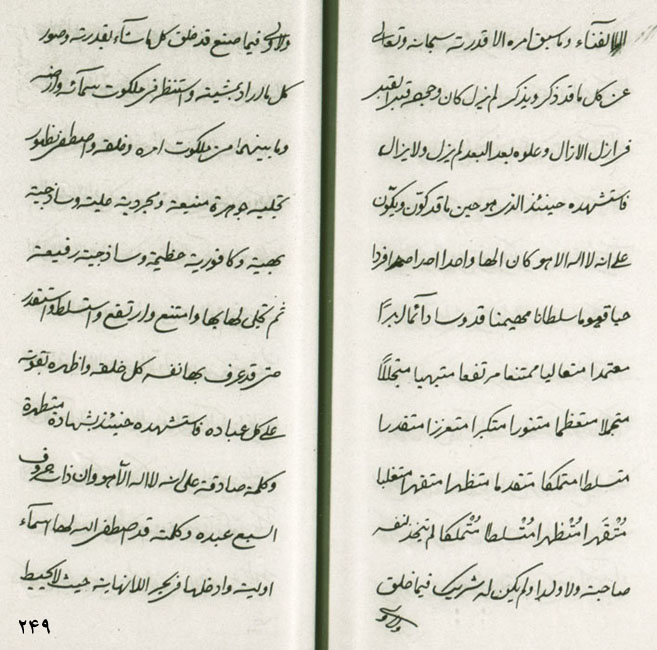 الا لفنآء و ما سبق امره الا قدرته سبحانه و تعالی
عن کل ما قد ذکر و یذکر لم یزل کان و حیا قبل القبل
فی ازل الازال و علوه بعد البعد لم یزل و لا یزال
فاستشهده حینئذ الذی هو حین ما قد کوّن و یکوّن
علی انه لا اله الا هو کان الها واحدا احدا صمدا فردا
حیا قیوما سلطانا مهیمنا قدوسا دآئما ابدا
معتمدا متعالیا ممتنعا مرتفعا متبهیا متجللاً
متجملا متعظما متنورا متکبرا متعززا متقدرا
متسلطا متملکا متقدما متظهرا متقهرا متغلبا
مُتْقَهرا مُتْظهرا مُتْسلطا مُتْملکا لم یتخذ لنفسه
صاحبته و لا ولدا و لم یکن له شریک فیما خلق
و لا ولی
و لا ولی فیما صنع قد خلق کل ما شآء بقدرته و صور
کل ما اراد بمشیته و استنظر فی ملکوت سمآئه و ارضه
و ما بینهما من ملکوت امره و خلقه و اصطفی لظهور
تجلیه جوهرة منیعة و مجردیة علیة و ساذجیة
بهیة و کافوریة عظیمة و ساذجیة رفیعة
ثم تجلی لها بها و امتنع و ارتفع و استسلط و استقدر
حتی قد عرف بها نفسه کل خلقه و اظهره بقوته
علی کل عباده فاستشهده حینئذ بشهادة متطهرة
و کلمة صادقة علی انه لا اله الا هو و ان ذات حروف
السبع عبده و کلمته قد اصطفی الله لها اسمآء
اولیته و ادخلها فی بحر اللانهایته حیث لا یحیط
۲۴۹